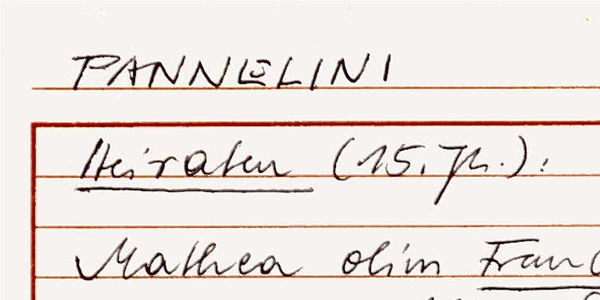 PANNELINI
Heiraten (15. Jh.):
Mathea olim Franc